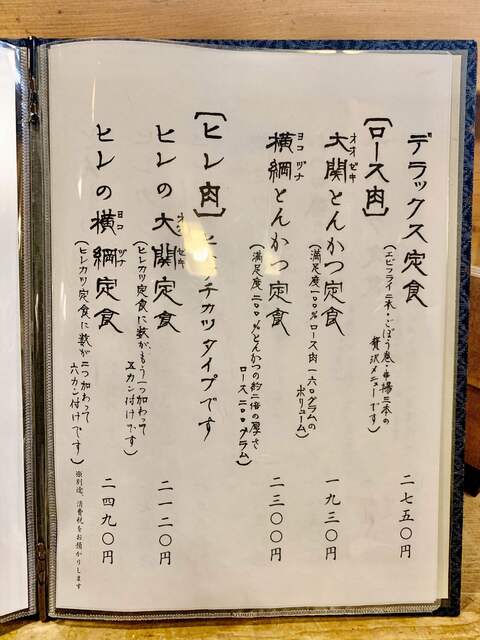 デラックス定食
(エビフライ二本・ごぼう巻・串揚三本の
贅沢メニューです)
二七五〇円
[ロース肉]
大関とんかつ定食
オオゼキ
(満足度一〇〇%ロース肉一六〇グラムの
ボリューム)
一九三〇円
横綱とんかつ定食
ヨコヅナ
(満足度二〇〇%とんかつの約二倍の厚さ
ロース二〇〇グラム)
二三〇〇円
[ヒレ肉]
チカツタイプです
ヒレの大関定食
オオゼキ
(ヒレカツ定食に数がもう一つ加わって
五カン付けです)
二一二〇円
ヒレの横綱定食
ヨコヅナ
(ヒレカツ定食に数が二つ加わって
六カン付けです)
二四九〇円
※別途、消費税をお預かりします